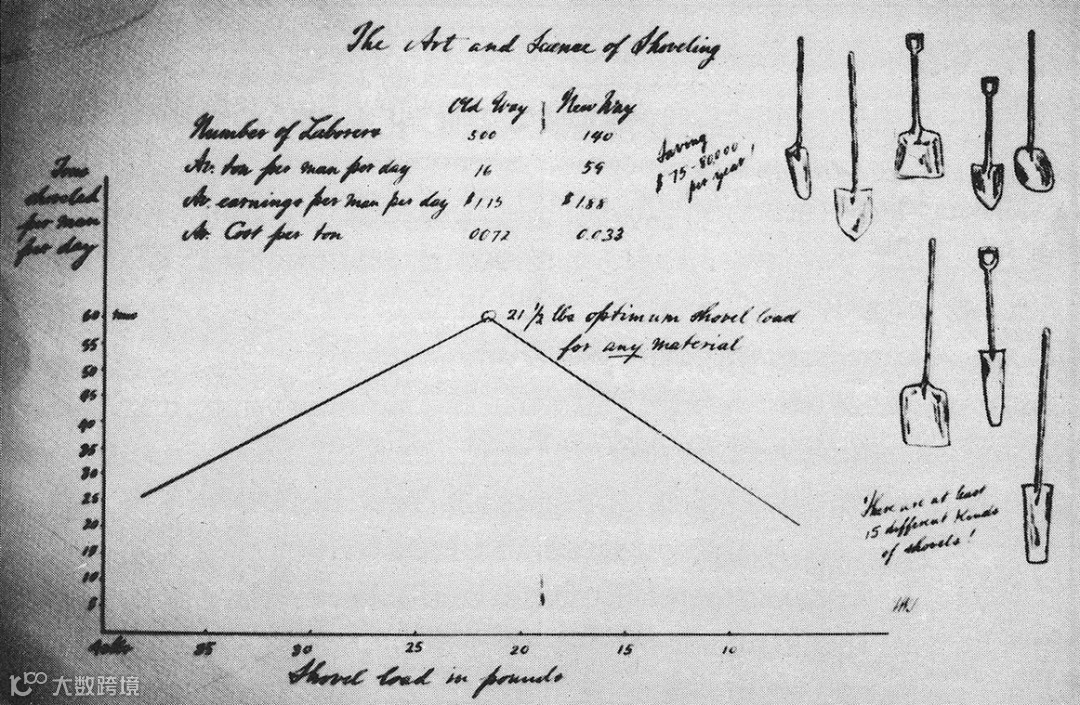 The Art and Science of Shoveling
Old Way New Way
Number of Laborers 500 140
Av. ton per man per day 16 59
Av. earnings per man per day $1.15 $1.88
Av. Cost per ton 0.072 0.033
Saving
$75-80000
per year!
Tons
shoveled
per man
per day
60 tons
55
50
45
40
35
30
25
20
15
10
5
21 1/2 lbs optimum shovel load
for any material
There are at least
15 different kinds
of shovels!
40 lbs 35 30 25 20 15 10
Shovel load in pounds
大数跨境